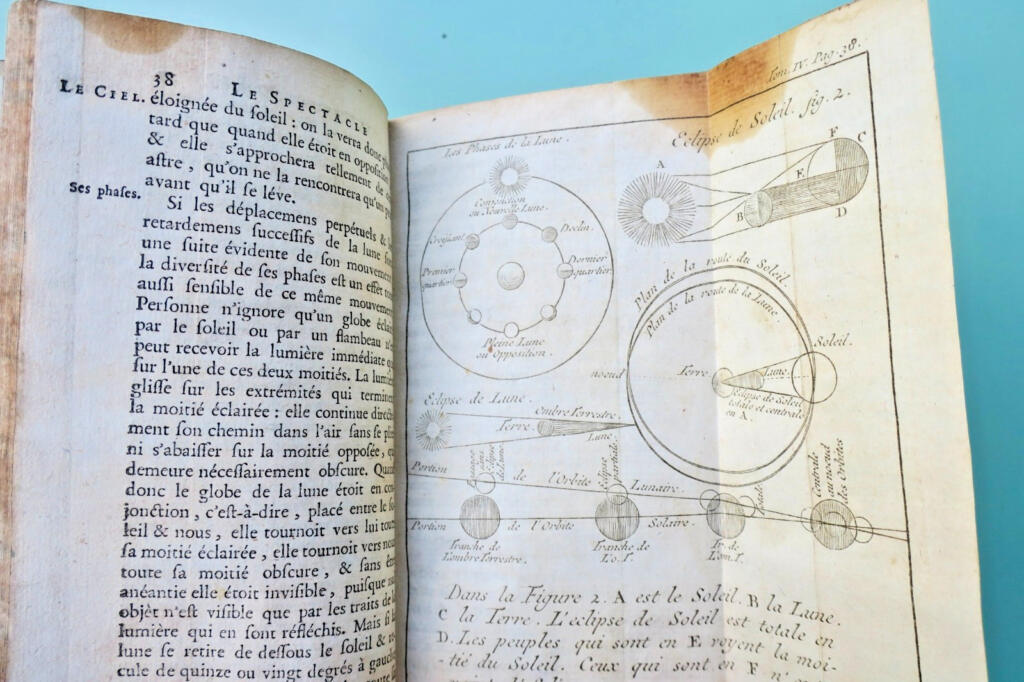 38
LE SPECTACLE
LE CIEL.
éloignée du ſoleil : on la verra donc
tard que quand elle étoit en oppoſition
& elle s'approchera tellement de
aſtre, qu'on ne la rencontrera qu'un
avant qu'il ſe léve.
Ses phaſes.
Si les déplacemens perpétuels &
retardemens ſucceſſifs de la lune
une ſuite évidente de ſon mouvement
la diverſité de ſes phaſes eſt un effet
auſſi ſenſible de ce même mouvement
Perſonne n'ignore qu'un globe éclairé
par le ſoleil ou par un flambeau
peut recevoir la lumière immédiate
ſur l'une de ces deux moitiés. La lumière
gliſſe ſur les extrémités qui terminent
la moitié éclairée : elle continue
ment ſon chemin dans l'air ſans ſe
ni s'abaiſſer ſur la moitié oppoſée,
demeure néceſſairement obſcure.
donc le globe de la lune étoit en con
jonction, c'eſt-à-dire, placé entre le ſo
leil & nous, elle tournoit vers lui toute
ſa moitié éclairée, elle tournoit vers nous
toute ſa moitié obſcure, & ſans être
anéantie elle étoit inviſible, puiſque
objèt n'eſt viſible que par les traits de
lumière qui en ſont réfléchis. Mais ſi la
lune ſe retire de deſſous le ſoleil &
cule de quinze ou vingt degrés à gauche
Tom. IV. Pag. 38.
Les Phases de la Lune.
Conjonction
ou Nouvelle Lune.
Croissant
Declin.
Premier
quartier
Dernier
quartier
Pleine Lune
ou Opposition.
Eclipse de Soleil. fig. 2.
A
F
C
E
B
D
Plan de la route du Soleil.
Plan de la route de la Lune.
noeud
Terre
Lune.
Soleil.
Eclipse de Soleil
totale et centrale
en A.
Eclipse de Lune.
Ombre Terrestre.
Terre.
Lune.
Eclipse
partiale
totale
Centrale
au noeud
des Orbites
Portion de l'Orbite Lunaire.
Portion de l'Orbite Solaire.
Tranche de
L'ombre Terrestre.
Tranche de
L'o. T.
Tr. de
L'om. T.
Dans la Figure 2. A est le Soleil. B la Lune.
C la Terre. L'eclipse de Soleil est totale en
D. Les peuples qui sont en E voyent la moi-
tié du Soleil. Ceux qui sont en F n'